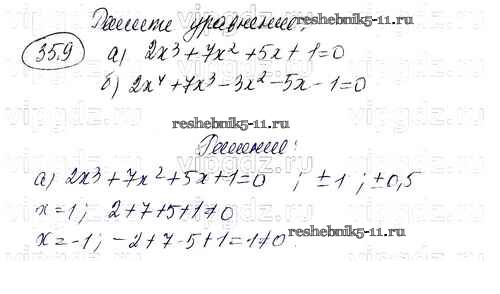 Решите уравнение:
reshebnik5-11.ru
35.9 а) 2x³ + 7x² + 5x + 1 = 0
б) 2x⁴ + 7x³ - 3x² - 5x - 1 = 0
reshebnik5-11.ru
Решение:
а) 2x³ + 7x² + 5x + 1 = 0 ; ± 1 ; ± 0,5
x = 1; 2 + 7 + 5 + 1 ≠ 0
x = -1; -2 + 7 - 5 + 1 = 1 ≠ 0
reshebnik5-11.ru